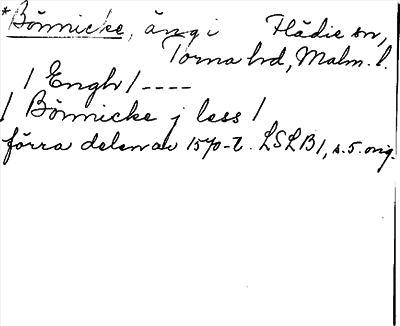 *Bönnicke, äng i Flädie sn,
Torna hd, Malm. l.
/ Engh / ----
/ Bönnicke j less /
förra delen av 1570-t. LSLB 1, s. 5. orig.